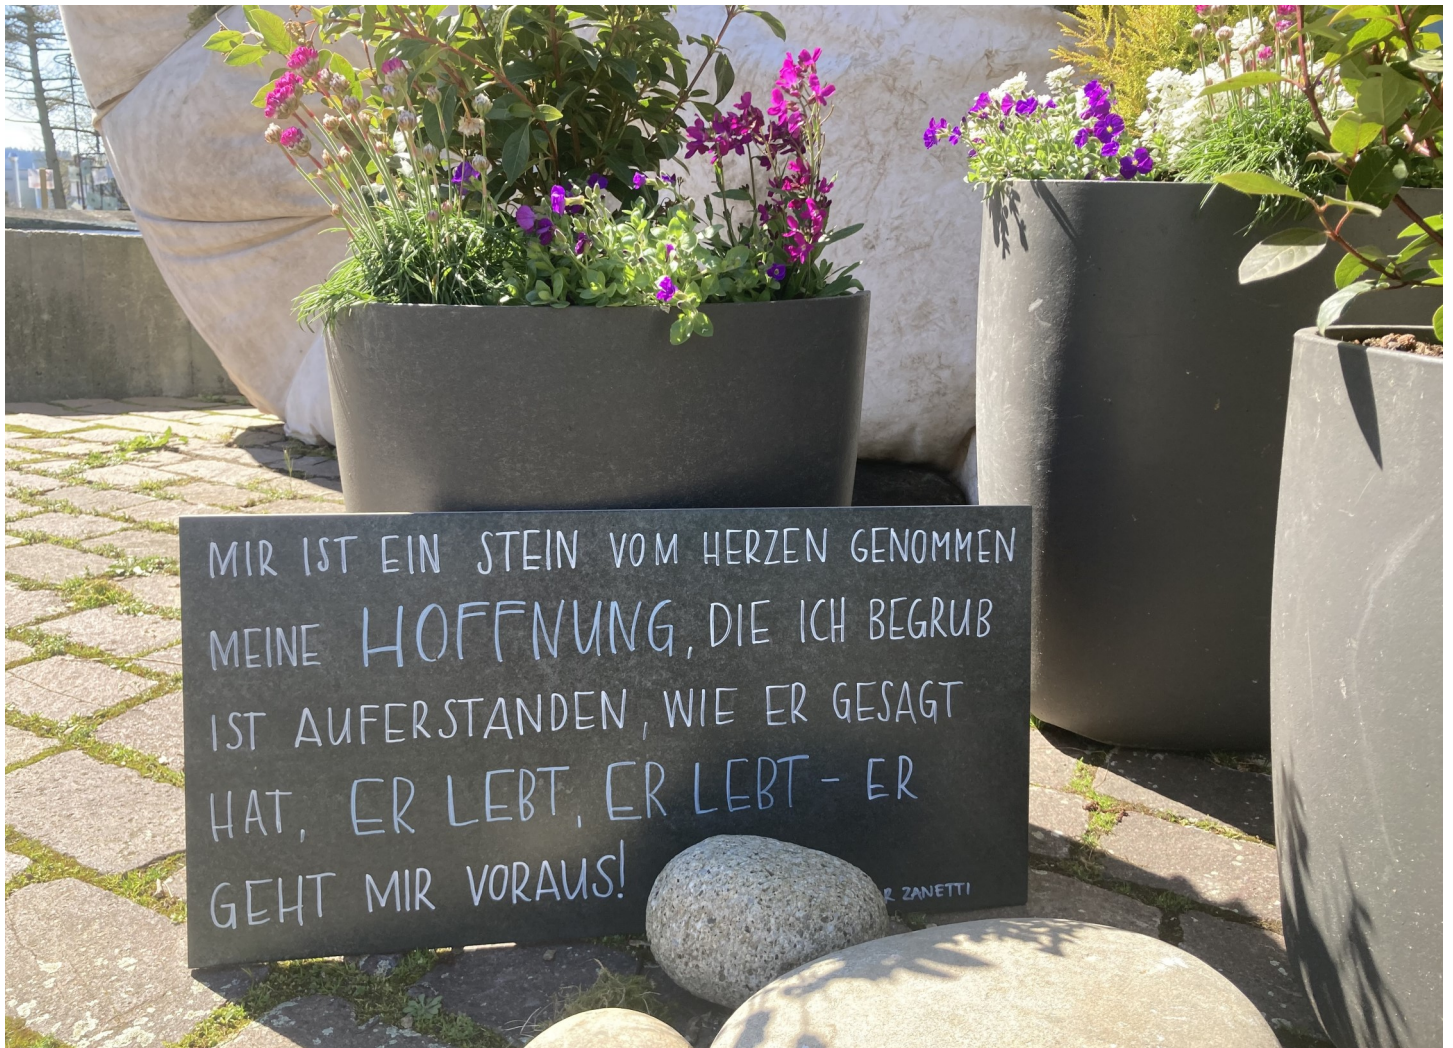 MIR IST EIN STEIN VOM HERZEN GENOMMEN
MEINE HOFFNUNG, DIE ICH BEGRUB
IST AUFERSTANDEN, WIE ER GESAGT
HAT, ER LEBT, ER LEBT – ER
GEHT MIR VORAUS!
ZANETTI